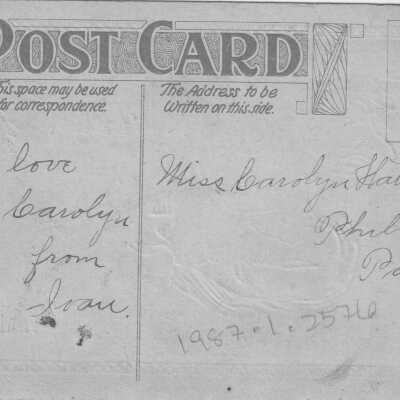 POST CARD
This space may be used
for correspondence.
The Address to be
Written on this side.
love
Carolyn
from
Joan.
Miss Carolyn
Phil
Pa
1987.1.2576